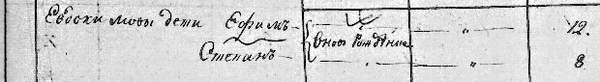 Евдокимовы дети Ефимъ 12.
Степанъ { вновь рожденные " 8